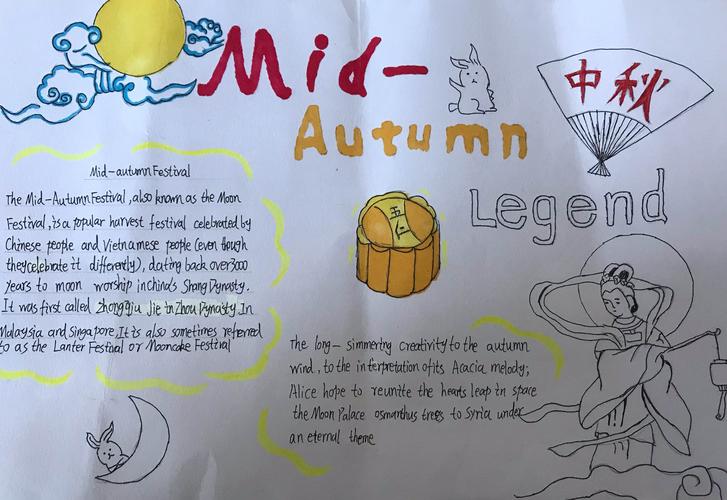 Mid-
Autumn
中秋
Legend
五仁
Mid-autumn Festival
The Mid-Autumn Festival, also known as the Moon
Festival, is a popular harvest festival celebrated by
Chinese people and Vietnamese people (even though
theycelebrate it differently), dating back over3000
years to moon worship inchina's Shang Dynasty.
It was first called Zhongqiu Jie in Zhou Dynasty. In
Malaysia and Singapore, It is also sometimes referred
to as the Lanter Festival or Mooncake Festival
The long-simmering creativity to the autumn
wind, to the interpretation ofits Acacia melody;
Alice hope to reunite the hearts leap in space
the Moon Palace osmanthus trees to Syria under
an eternal theme